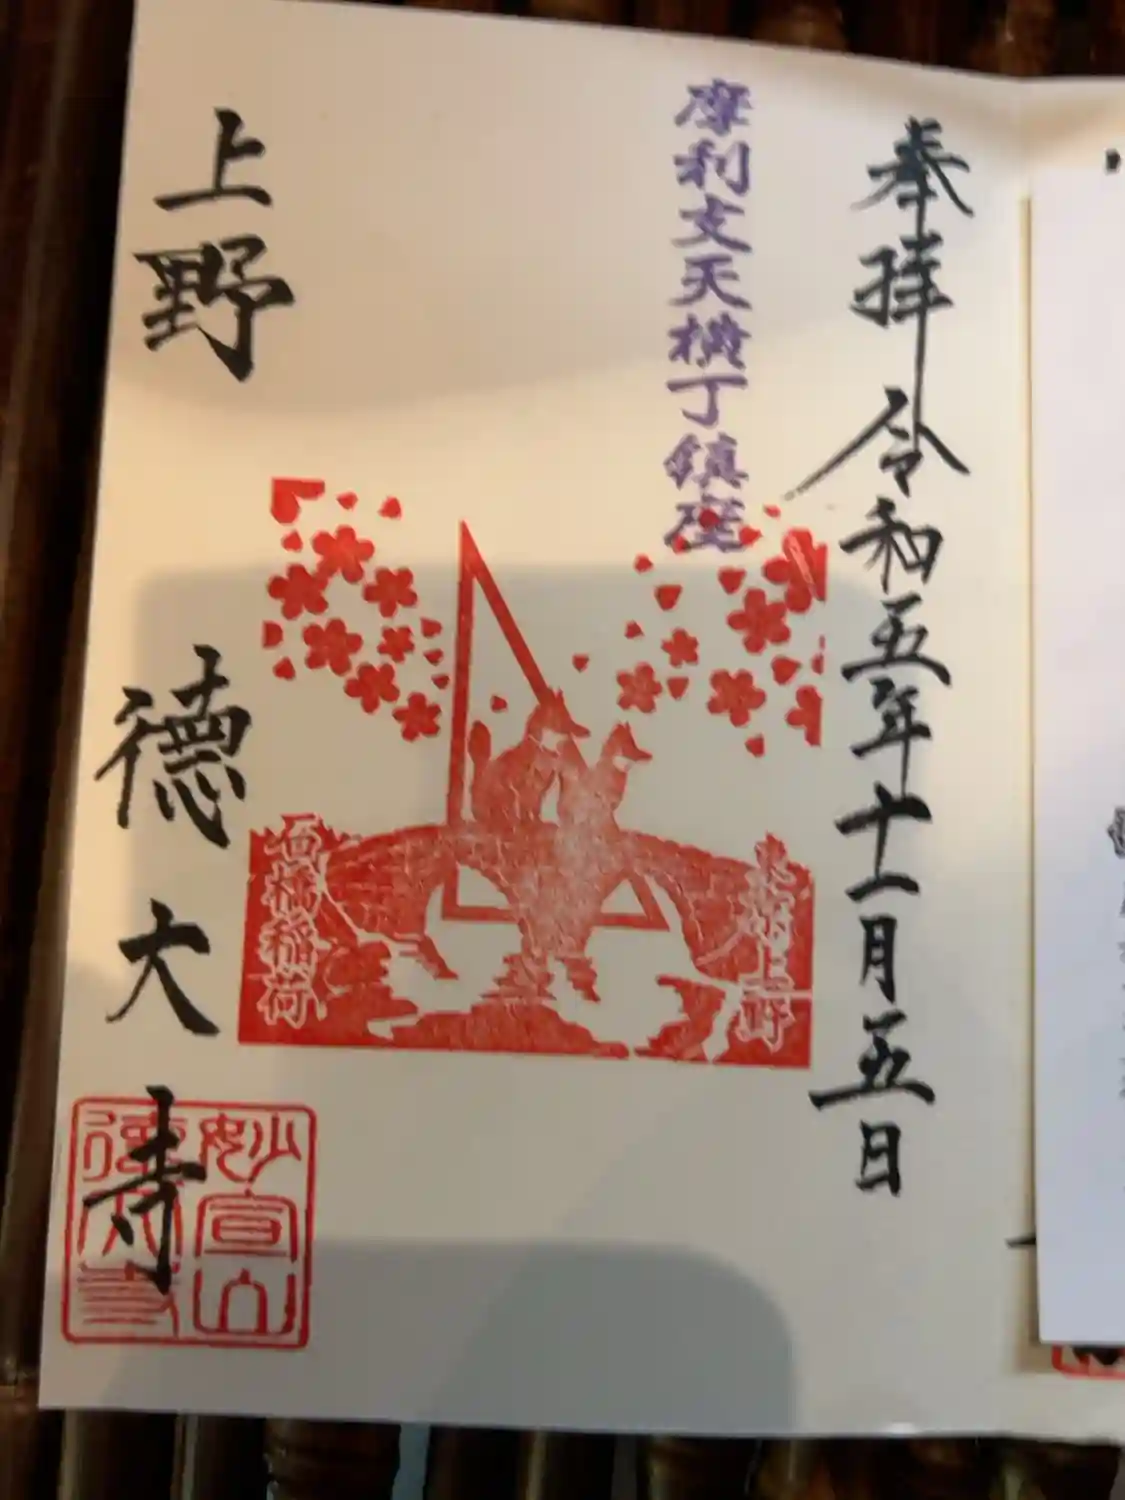 奉拝 令和五年十一月五日
摩利支天横丁鎮座
東都上野
石橋稲荷
上野 徳大寺
妙宣山
徳大寺